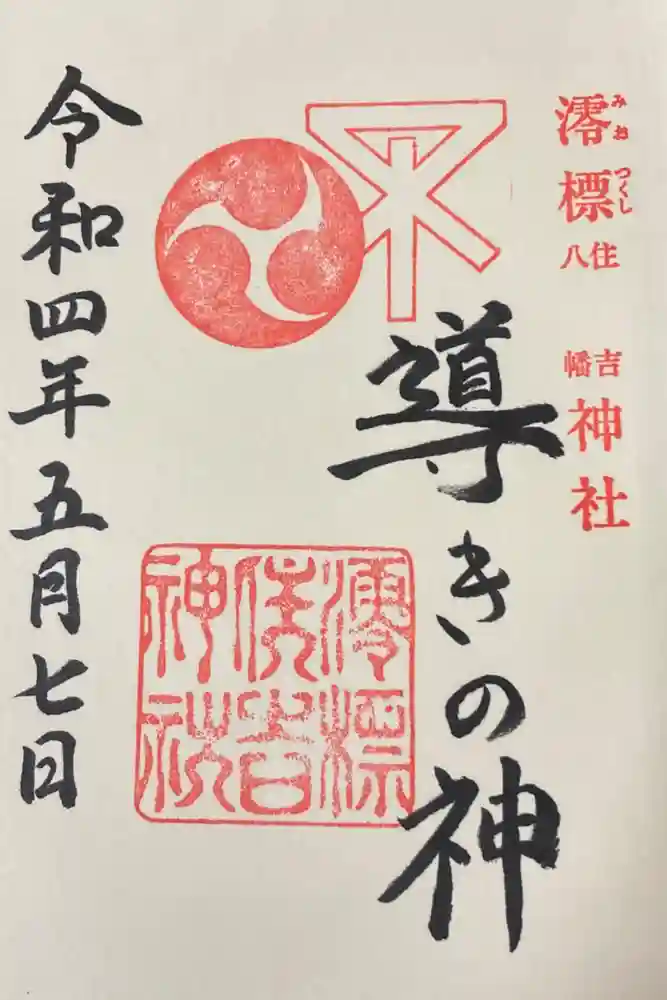 澪標
みおつくし
住吉
八幡
神社
導きの神
澪標
住吉
神社
令和四年五月七日